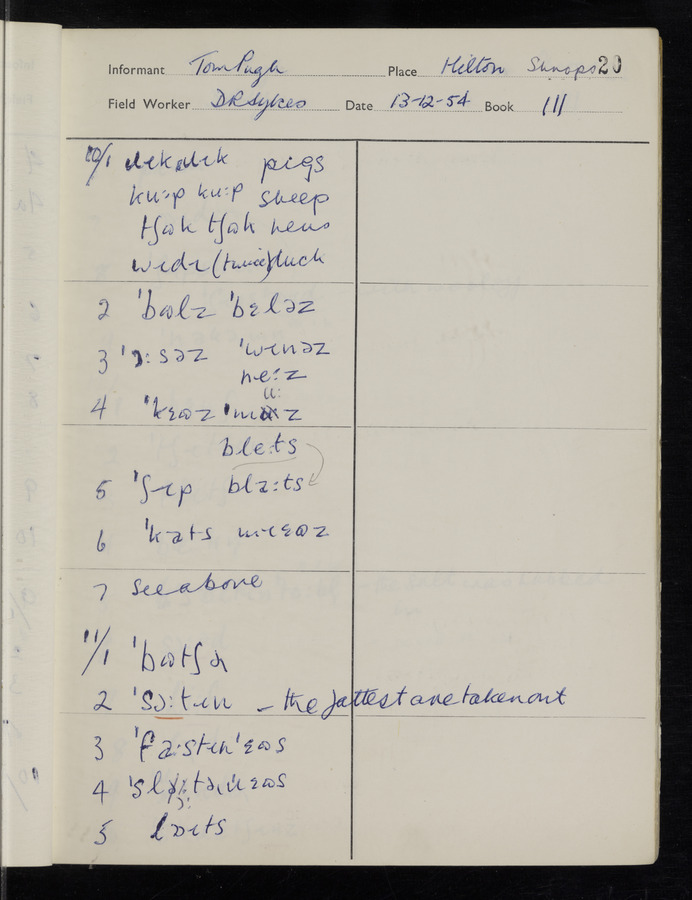 Informant Tom Pugh Place Hilton Shrops 20
Field Worker DR Sykes Date 13-12-54 Book III
10/1 dɪk dɪk pigs
kuːp kuːp sheep
tʃʊk tʃʊk hens
(twice) duck
2 ˈbʊlz ˈbɛləz
3 ˈɔːsəz ˈwɪnəz
neːz
4 ˈkɛʊz ˈmuːz
bleːts
5 ˈʃɪp blaːts
6 ˈkats mɪɛʊz
7 see above
11/1 ˈbʊtʃə
2 ˈsɔːtɪn – the fattest are taken out
3 ˈfaːstɪnˈɛʊs
4 ˈslɔːtəɪnɛʊs
5 lɔɪts